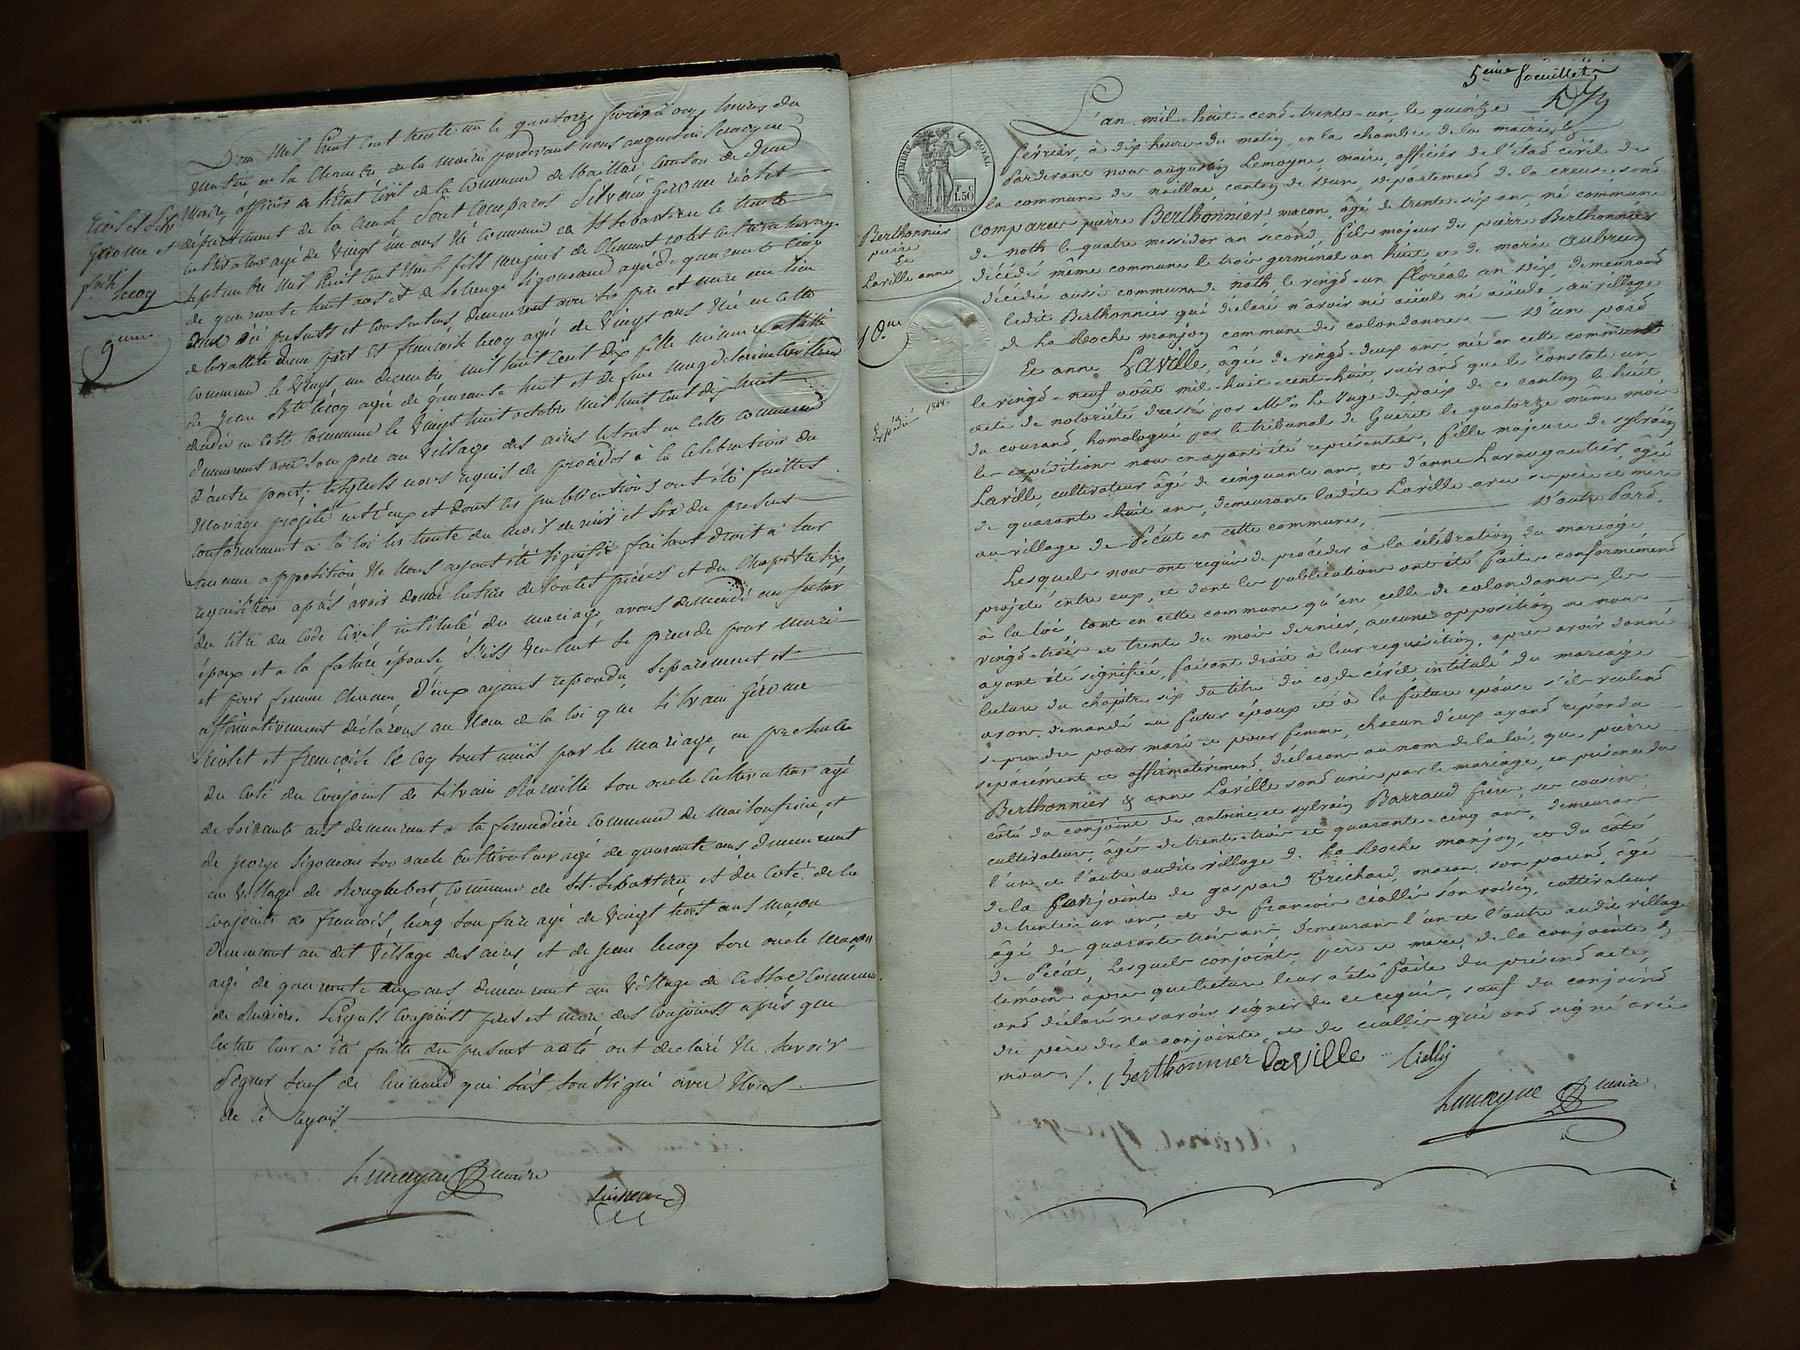 L'an Mil huit cent trente un le quatorze fevrier à onze heures du
matin en la chambre de la Mairie pardevant nous augustin Lemoyne
Maire, officier de l'état civil de la Commune de Naillat canton de Dun
département de la Creuse Sont comparus Silvain Gerome riolet
cultivateur agé de vingt un ans Né commune de St Sebastien le trente
septembre mil huit cent neuf fils majeur de
de quarante huit ans et de Solange Sigonaud agée de quarante cinq
ans ici présents et consentens demeurant avec ses père et mere au lieu
de d'une part Et françoise lecoq agée de vingt ans née en cette
commune le vingt un decembre mil huit cent dix fille mineure
de Jean lecoq agé de quarante huit et de
décédée en cette commune le vingt huit octobre mil huit cent dix huit
demeurant avec son pere au village des aires le tout en cette commune
d'autre part; lesquels nous requis de procéder à la célébration du
Mariage projeté entr'eux et dont les publications ont été faittes
conformement à la loi les trente du mois dernier et six du present
aucune opposition ne nous ayant été signifiée faisant droit à leur
requisition aprés avoir donné lecture de toutes pièces et du chapitre six
du titre du Code civil intitulé du mariage, avons demandé au futur
époux et a la future épouse, s'ils veulent se prendre pour mari
et pour femme chacun d'eux ayant repondu separement et
affirmativement déclarons au Nom de la loi que Silvain Gérome
riolet et françoise le coq sont unis par le mariage, en presence
du coté du conjoint de Silvain son oncle cultivateur agé
de soixante ans demeurant a la commune de Maisonfeine, et
de son oncle cultivateur agé de quarante ans demeurant
au village de commune de St Sebastien et du coté de la
conjointe de francois lecoq son frere agé de vingt trois ans maçon
demeurant au dit village des aires, et de jean lecoq son oncle maçon
agé de quarante ans demeurant au village de commune
Lesquels conjoints pères et mere des conjoints aprés que
lecture leur a été faite du present acte ont declaré ne savoir
signer sauf qui soussigné avec Nous
de ce requis
Lemoyne maire
riolet Silv
Gerome et
fse lecoq
9eme
5eme feuillet
L'an mil-huit-cent-trente-un, le quinze
février, à dix heures du matin, en la chambre de la mairie &
Pardevant nous augustin Lemoyne, maire, officier de l'état civil de
la commune de naillat canton de Dun, département de la creuse sont
comparus pierre Berthonnier maçon, âgé de trente-sept ans, né commune
de noth le quatre messidor an second, fils majeur de pierre Berthonnier
décédé même commune le trois germinal an huit, et de marie aubrun
décédée aussi commune de noth le vingt-un floréal an dix, demeurant
ledit Berthonnier qui déclaré n'avoir ni aïeul ni aïeule, au village
de La Roche manjon commune de colondannes — D'une part
Et anne LAVille, âgée de vingt-deux ans née en cette commune
le vingt-neuf août mil-huit-cent-huit, suivant que le constate un
acte de notoriété dressé par Mr Le Juge de paix de ce canton le huit
du courant, homologué par le tribunal de Guéret le quatorze même mois
les expéditions nous en ayant été représentées, fille majeure de sylvain
Laville, cultivateur âgé de cinquante ans, et d'anne Lavaugautier, âgée
de quarante-huit ans, demeurant ladite Laville avec ses père et mere
au village de Pécut en cette commune, D'autre Part.
Lesquels nous ont requis de procéder à la célébration du mariage
projeté entre eux, et dont les publications ont été faites conformément
à la loi, tant en cette commune qu'en celle de colondannes les
vingt-trois et trente du mois dernier, aucune opposition ne nous
ayant été signifiée, faisant droit à leur requisition, après avoir donné
lecture du chapitre six du titre du code civil intitulé du mariage
avons demandé au futur époux et à la future épouse s'ils veulent
se prendre pour mari et pour femme, chacun d'eux ayant répondu
séparément et affirmativement, déclarons au nom de la loi, que pierre
Berthonnier & anne Laville sont unis par le mariage, en présence du
côté du conjoint de antoine et sylvain Barraud frères, ses cousins
cultivateurs, âgés de trente-trois et quarante-cinq ans, demeurant
l'un et l'autre audit village de La Roche manjon, et du côté
de la conjointe de gaspard Trichard, maçon, son parent, âgé
de trente-un ans et de françois ciallis son voisin, cultivateur
âgé de quarante-trois ans, demeurant l'un et l'autre audit village
de Pécut, Lesquels conjoints, père et mere, de la conjointe &
témoins après que lecture leur a été faite du présent acte,
ont déclaré ne savoir signer de ce requis, sauf du conjoint
du père de la conjointe, et de ciallis qui ont signé avec
nous /. Berthonnier LAVILLE Ciallis
Lemoyne maire
TIMBRE ROYAL
1.50
Berthonnier
pierre
&
Laville anne
10eme
Expédié 1808.